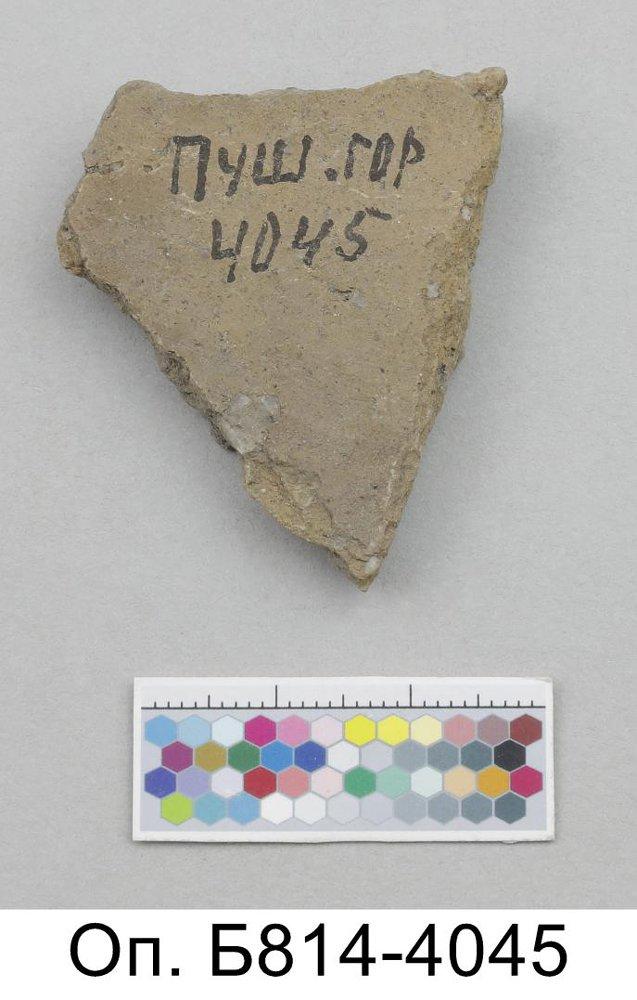 ПУШ.ГОР
4045
Оп. Б814-4045